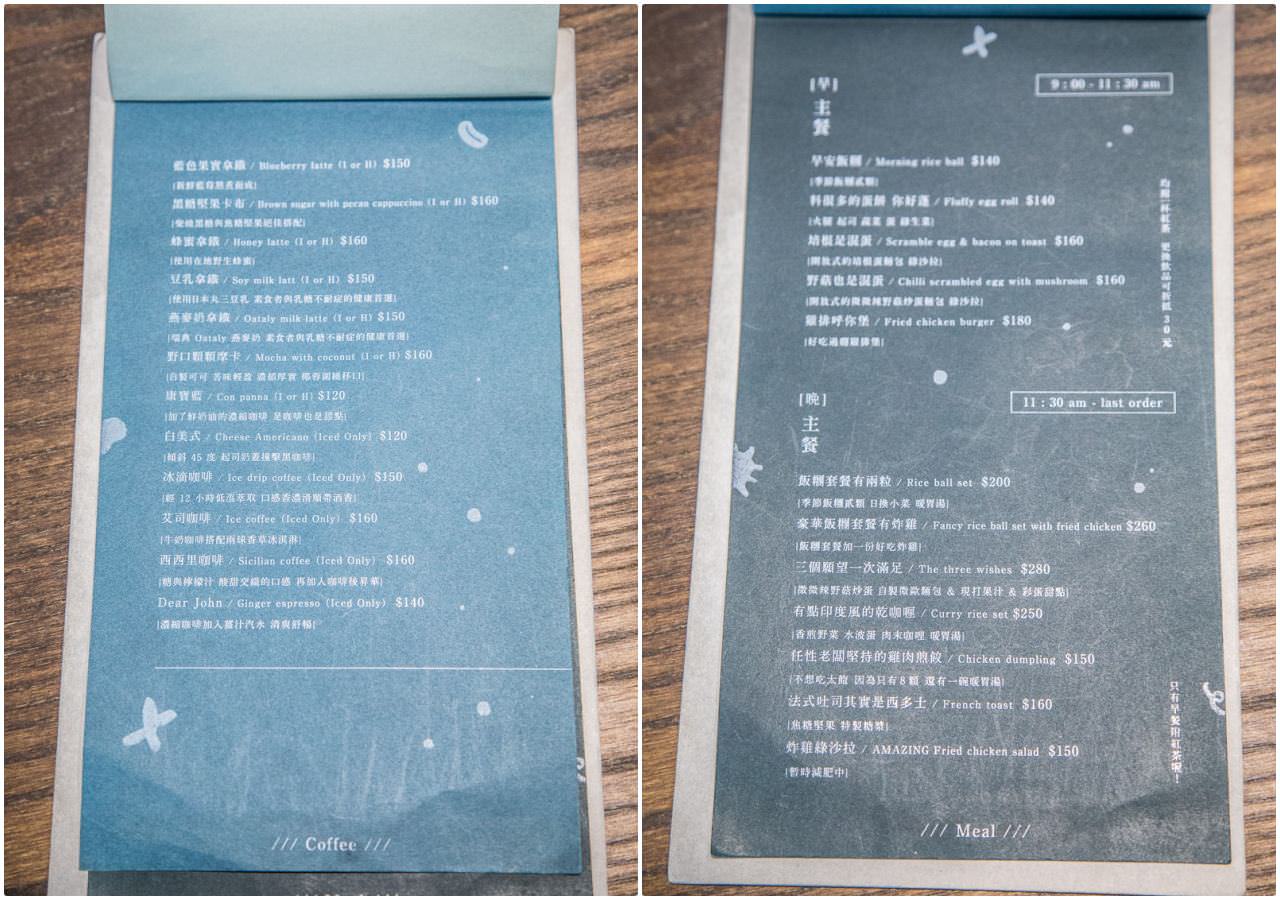 藍色果實拿鐵 / Blueberry latte (I or H) $150
[新鮮藍莓熬煮而成]
黑糖堅果卡布 / Brown sugar with pecan cappuccino (I or H) $160
[柴燒黑糖與焦糖堅果絕佳搭配]
蜂蜜拿鐵 / Honey latte (I or H) $160
[使用在地野生蜂蜜]
豆乳拿鐵 / Soy milk latt (I or H) $150
[使用日本丸三豆乳 素食者與乳糖不耐症的健康首選]
燕麥奶拿鐵 / Oataly milk latte (I or H) $150
[瑞典 Oataly 燕麥奶 素食者與乳糖不耐症的健康首選]
野口顆顆摩卡 / Mocha with coconut (I or H) $160
[自製可可 苦味輕盈 濃郁厚實 椰蓉圍繞杯口]
康寶藍 / Con panna (I or H) $120
[加了鮮奶油的濃縮咖啡 是咖啡也是甜點]
白美式 / Cheese Americano (Iced Only) $120
[傾斜 45 度 起司奶蓋撞擊黑咖啡]
冰滴咖啡 / Ice drip coffee (Iced Only) $150
[經 12 小時低溫萃取 口感香濃滑順帶酒香]
艾司咖啡 / Ice coffee (Iced Only) $160
[牛奶咖啡搭配兩球香草冰淇淋]
西西里咖啡 / Sicilian coffee (Iced Only) $160
[糖與檸檬汁 酸甜交織的口感 再加入咖啡後昇華]
Dear John / Ginger espresso (Iced Only) $140
[濃縮咖啡加入薑汁汽水 清爽舒暢]
/// Coffee ///
[早]
主
餐
9 : 00 - 11 : 30 am
早安飯糰 / Morning rice ball $140
[季節飯糰貳顆]
料很多的蛋餅 你好蓬 / Fluffy egg roll $140
[火腿 起司 蔬菜 蛋 綠生菜]
培根是混蛋 / Scramble egg & bacon on toast $160
[開放式的培根蛋麵包 綠沙拉]
野菇也是混蛋 / Chilli scrambled egg with mushroom $160
[開放式的微微辣野菇炒蛋麵包 綠沙拉]
雞排呼你堡 / Fried chicken burger $180
[好吃過癮雞排堡]
均附一杯紅茶 更換飲品可折抵 30元
[晚]
主
餐
11 : 30 am - last order
飯糰套餐有兩粒 / Rice ball set $200
[季節飯糰貳顆 日換小菜 暖胃湯]
豪華飯糰套餐有炸雞 / Fancy rice ball set with fried chicken $260
[飯糰套餐加一份好吃炸雞]
三個願望一次滿足 / The three wishes $280
[微微辣野菇炒蛋 自製微歐麵包 & 現打果汁 & 彩蛋甜點]
有點印度風的乾咖喱 / Curry rice set $250
[香煎野菜 水波蛋 肉末咖哩 暖胃湯]
任性老闆堅持的雞肉煎餃 / Chicken dumpling $150
[不想吃太飽 因為只有8顆 還有一碗暖胃湯]
法式吐司其實是西多士 / French toast $160
[焦糖堅果 特製糖漿]
炸雞綠沙拉 / AMAZING Fried chicken salad $150
[暫時減肥中]
只有早餐附紅茶喔!
/// Meal ///